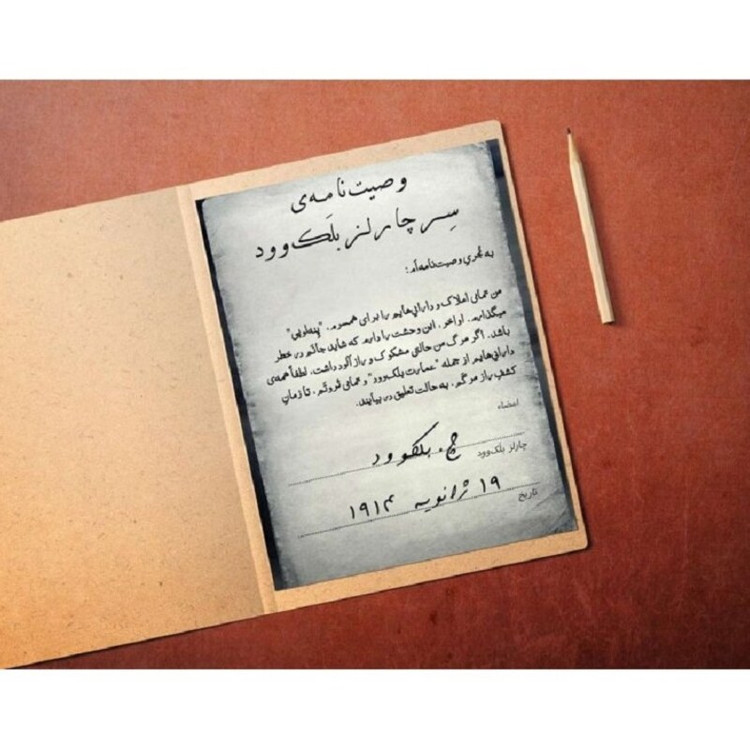 وصیت‌نامه‌ی
سِر چارلز بلَک‌وود
به مجری وصیت‌نامه‌ام:
من تمامی املاک و دارایی‌هایم را برای همسرم، "پنه‌لوپی"
میگذارم. اواخر، این وحشت را دارم که شاید جانم در خطر
باشد. اگر مرگ من حالتی مشکوک و رازآلود داشت، لطفاً همه‌ی
دارایی‌هایم از جمله "عمارت بلک‌وود" و تمامی ثروتم، تا زمان
کشف راز مرگم، به حالت تعلیق در بیایند.
امضاء
چ. بلکوود
چارلز بلک‌وود
۱۹ ژانویه ۱۹۱۴
تاریخ